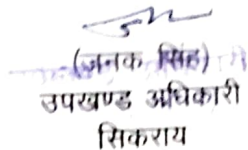 (जनक सिंह)
उपखण्ड अधिकारी
सिकराय